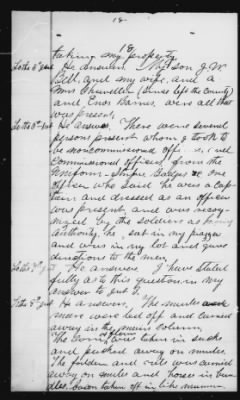 18
18.
taking my property
To the 6th Int He answers. My son J. W.
Bell and my wife, and a
Mrs Chevallier (since left the county)
and Enos Barnes, were all that
was present.
To the 7th Int He answers. There were several
persons present whom I took to
be noncommissioned and
Commissioned officers from the
Uniform - Stripes Badges &c one
officer who said he was a Cap-
tain and dressed as an officer
was present and was recog-
nized by the soldiers as having
authority, he sat in my piazza
and was in my lot and gave
directions to the men.
He answers I have stated
fully as to this question in my
answer to Int
He answers. The mules and
mare were led off and carried
away in the main column,
The Corn was taken in sacks
and packed away on mules
The fodder and were carried
away on mules and horses in bun
dles. Bacon taken off in like manner